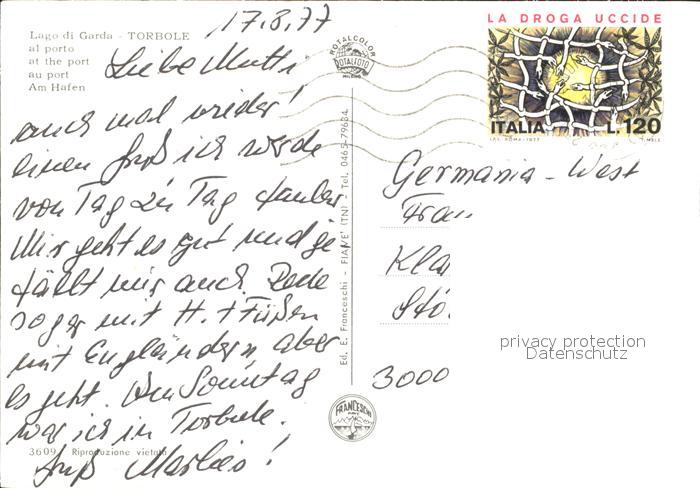 17.8.77
Lago di Garda - TORBOLE
al porto
at the port
au port
Am Hafen
Liebe Mutti
auch mal wieder!
einen Gruß ich werde
von Tag zu Tag
Mir geht es gut und ge
fällt mir auch. Rede
sogar mit H. + Füßen
mit Engländern aber
es geht. Am Sonntag
war ich in Torbole.
Gruß Marlies!
3609 Riproduzione vietata
ROTALCOLOR
ROTALFOTO
MILANO
Ed. E. Franceschi - FIAVE' (TN) - Tel. 0465-79634
FRANCESCHI
LA DROGA UCCIDE
ITALIA L. 120
I.P.S. ROMA-1977
Germania - West
Frau
Kla
Stö
3000
privacy protection
Datenschutz